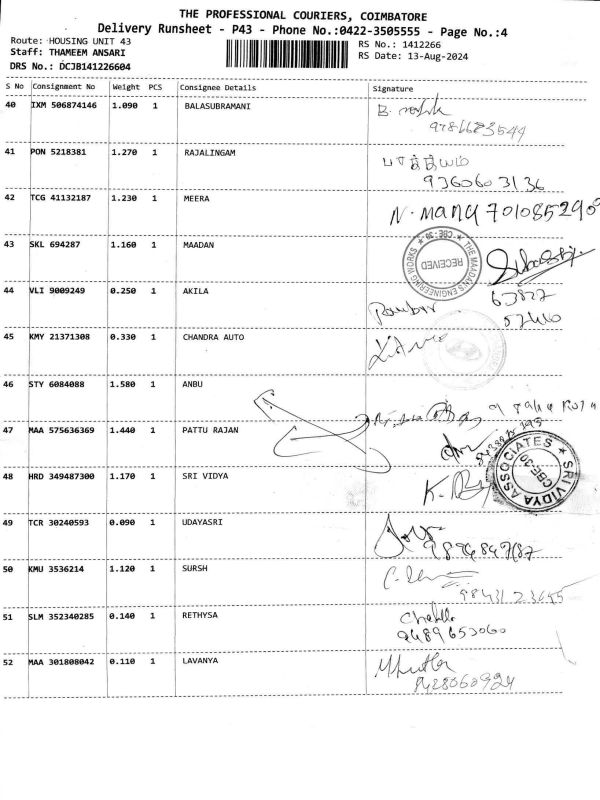 THE PROFESSIONAL COURIERS, COIMBATORE
Delivery Runsheet - P43 - Phone No.:0422-3505555 - Page No.:4
Route: HOUSING UNIT 43
RS No.: 1412266
Staff: THAMEEM ANSARI
RS Date: 13-Aug-2024
DRS No.: DCJB141226604
S No Consignment No Weight PCS Consignee Details Signature
40 IXM 506874146 1.090 1 BALASUBRAMANI B.
41 PON 5218381 1.270 1 RAJALINGAM
9360603136
42 TCG 41132187 1.230 1 MEERA N. MANY 7010852908
43 SKL 694287 1.160 1 MAADAN
THE MAADAN'S ENGINEERING WORKS
CBE-30
RECEIVED
44 VLI 9009249 0.250 1 AKILA
63827
45 KMY 21371308 0.330 1 CHANDRA AUTO
46 STY 6084088 1.580 1 ANBU
47 MAA 575636369 1.440 1 PATTU RAJAN
48 HRD 349487300 1.170 1 SRI VIDYA
SRI VIDYA ASSOCIATES
CBE-30
49 TCR 30240593 0.090 1 UDAYASRI
50 KMU 3536214 1.120 1 SURSH
51 SLM 352340285 0.140 1 RETHYSA
9489653060
52 MAA 301808042 0.110 1 LAVANYA